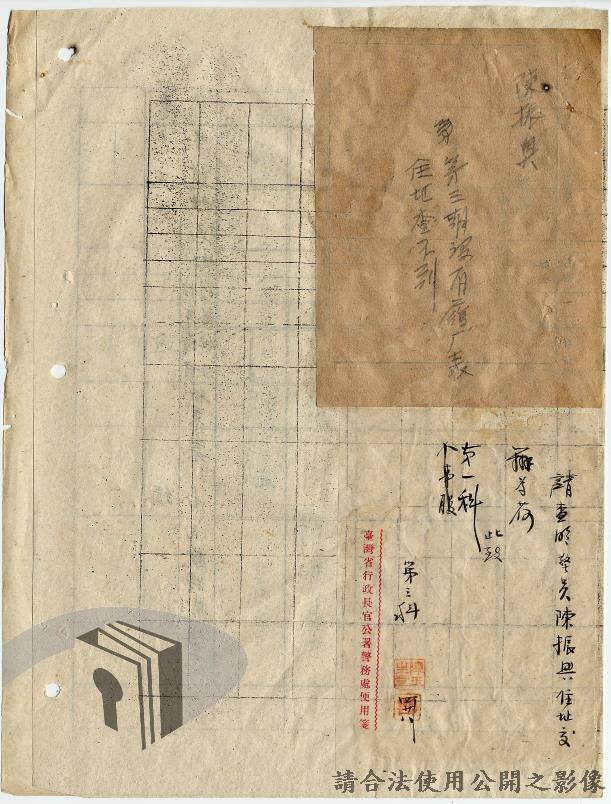 陳振興
第三期沒有履厂表
住址查不到
請查明警員陳振興住址交
辦為荷
此致
第一科
人事股
第三科
臺灣省行政長官公署警務處便用箋
請合法使用公開之影像